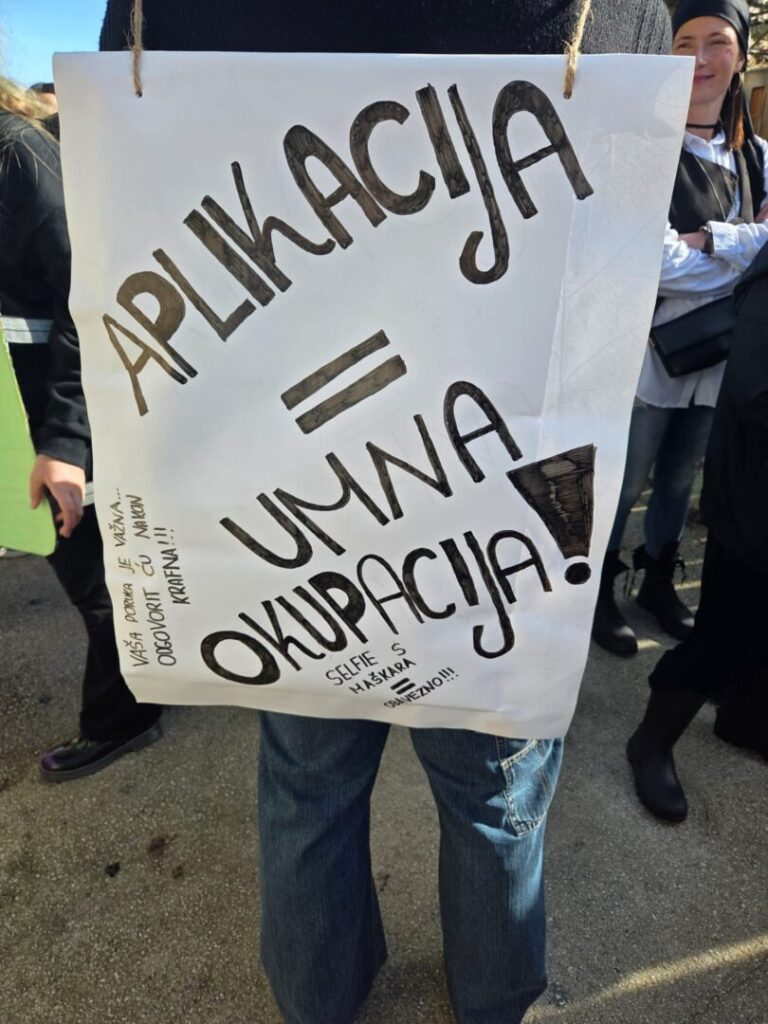 APLIKACIJA
=
UMNA
OKUPACIJA!
VAŠA PORUKA JE VAŽNA...
ODGOVORIT ĆU NAKON
KRAFNA!!!
SELFIE S
MAŠKARA
=
OBAVEZNO!!!